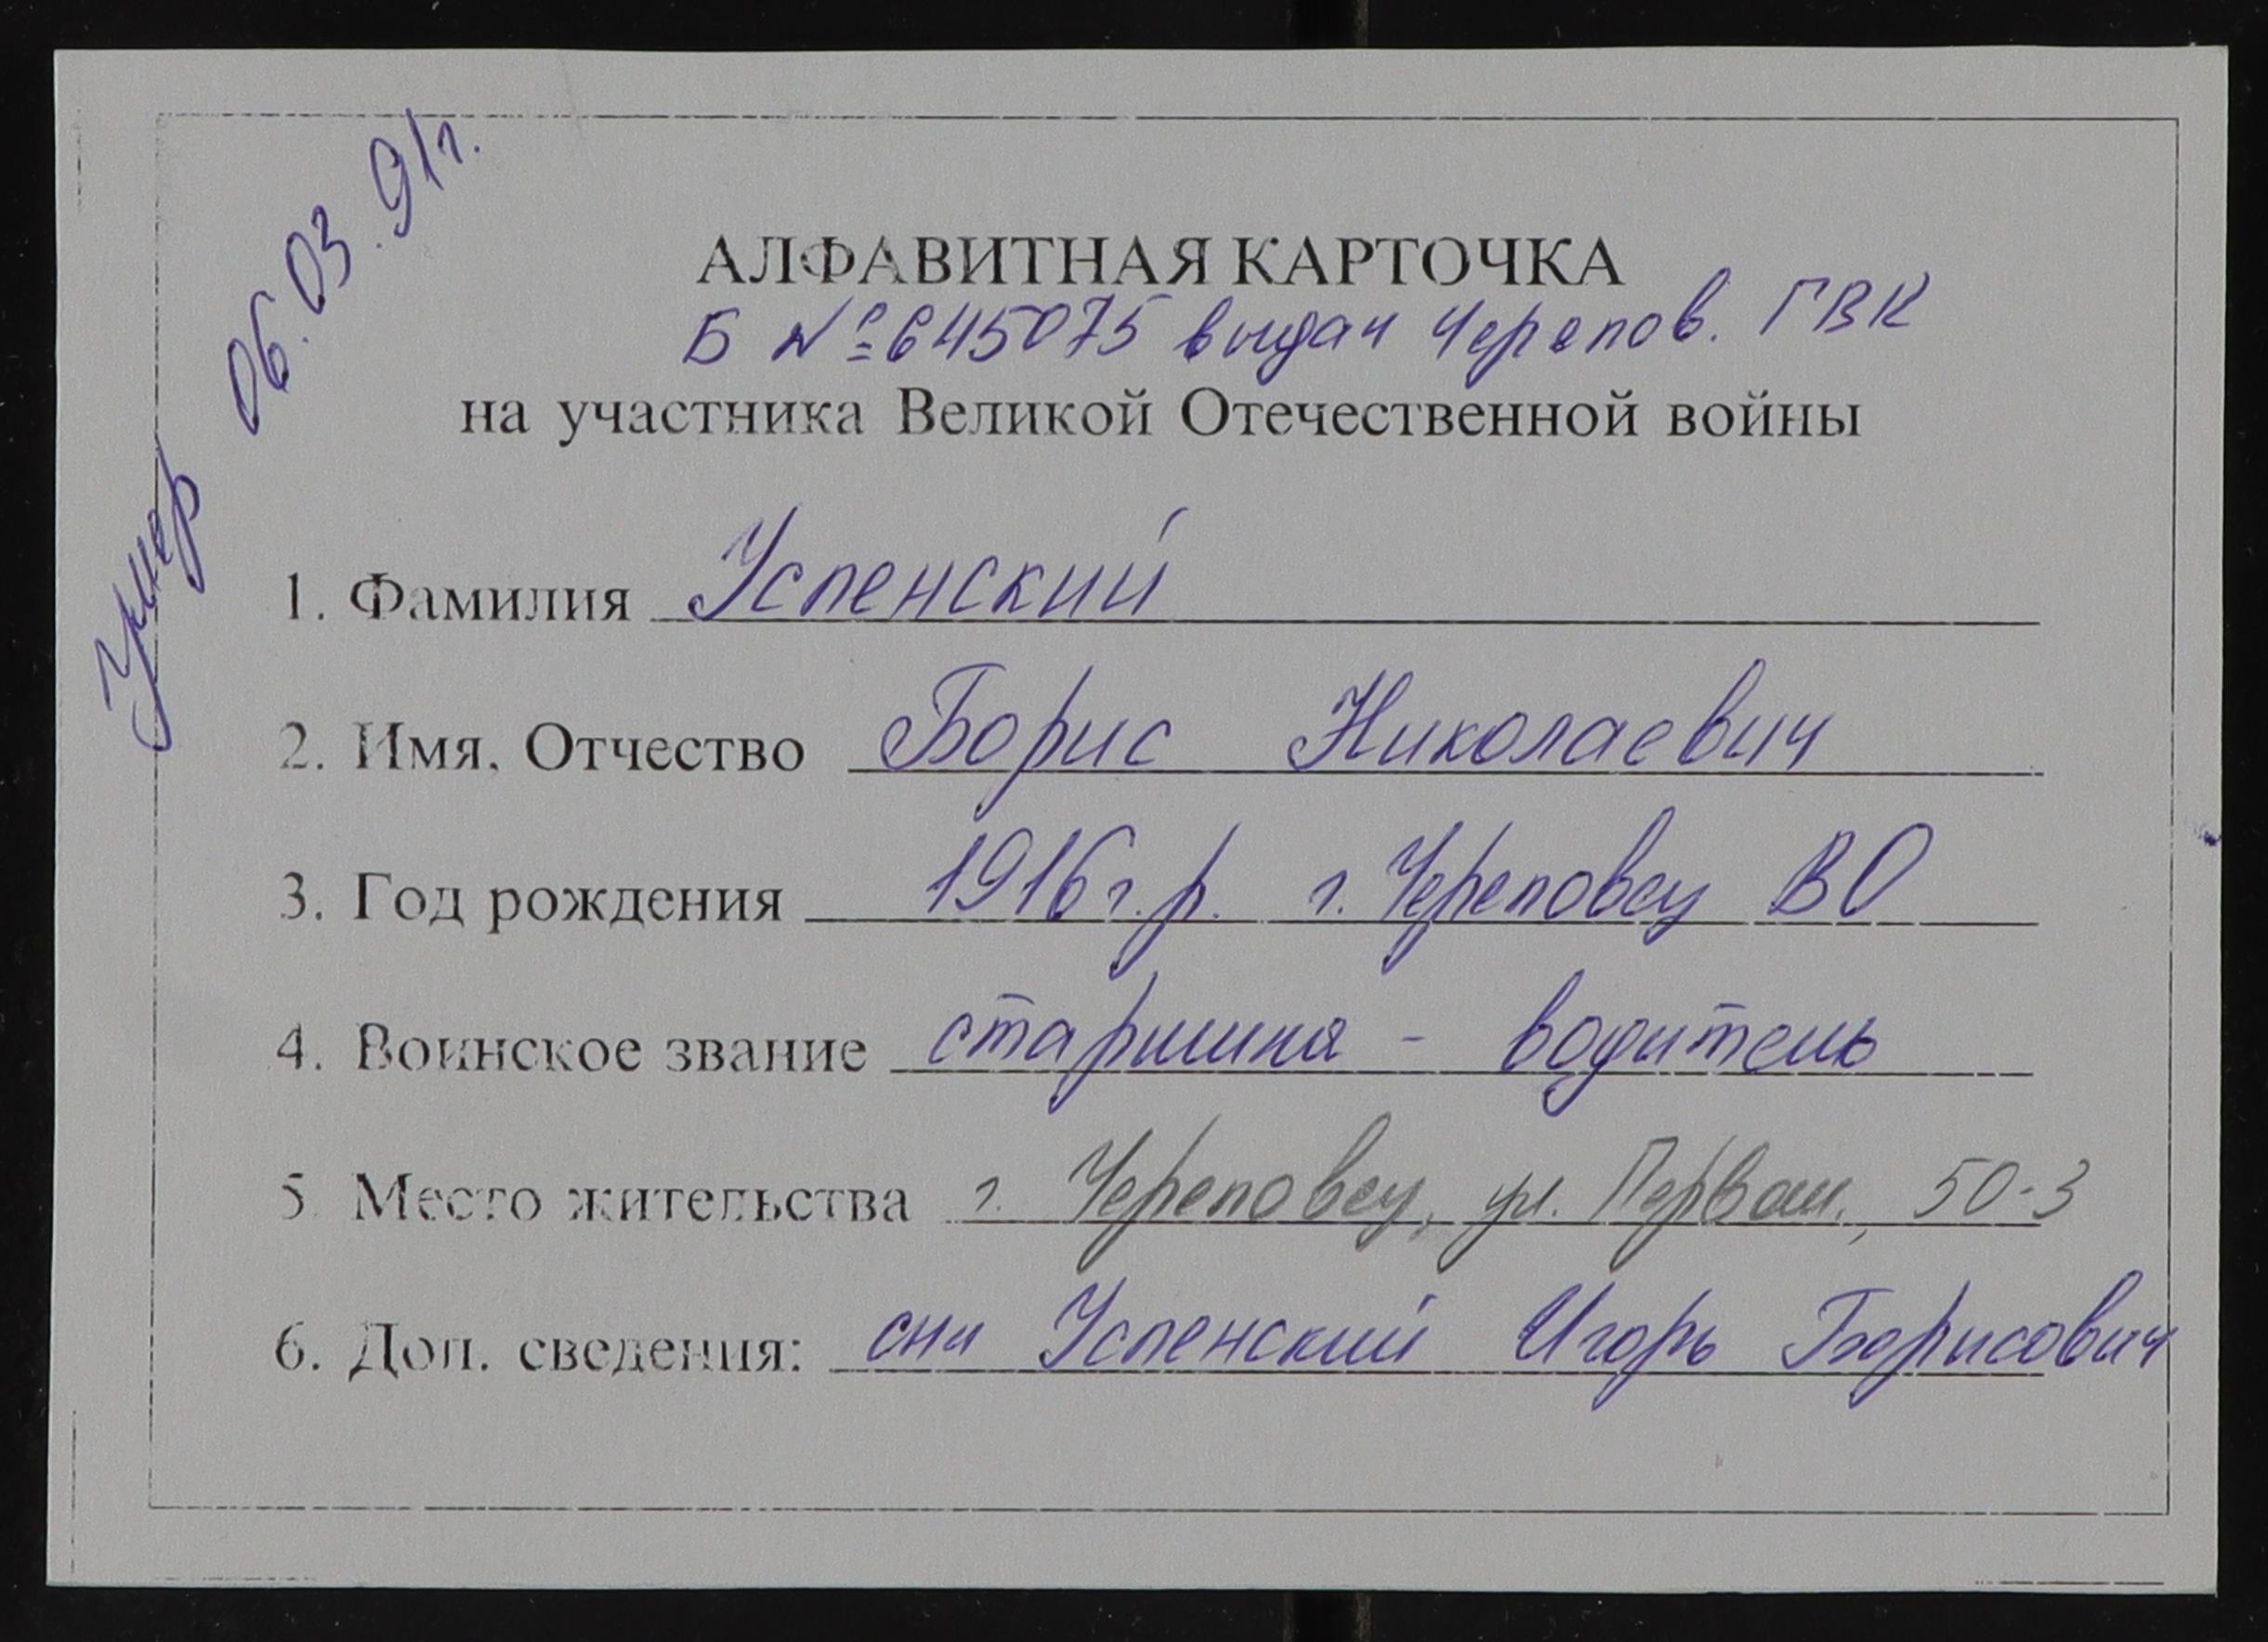 Умер 06.03.91г.
АЛФАВИТНАЯ КАРТОЧКА
Б № 645075 выдан Черепов. ГВК
на участника Великой Отечественной войны
1. Фамилия Успенский
2. Имя, Отчество Борис Николаевич
3. Год рождения 1916 г.р. г. Череповец ВО
4. Воинское звание старшина - водитель
5. Место жительства г. Череповец, ул. Первом., 50-3
6. Доп. сведения: Успенский Игорь Борисович